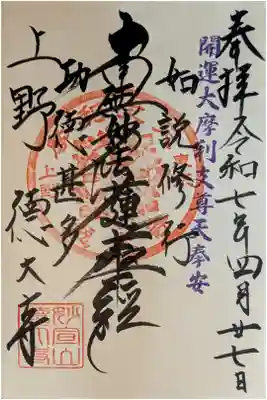 奉拝
令和七年四月廿七日
開運大摩利支尊天奉安
如説修行
南無妙法蓮華経
功徳甚多
上野 徳大寺